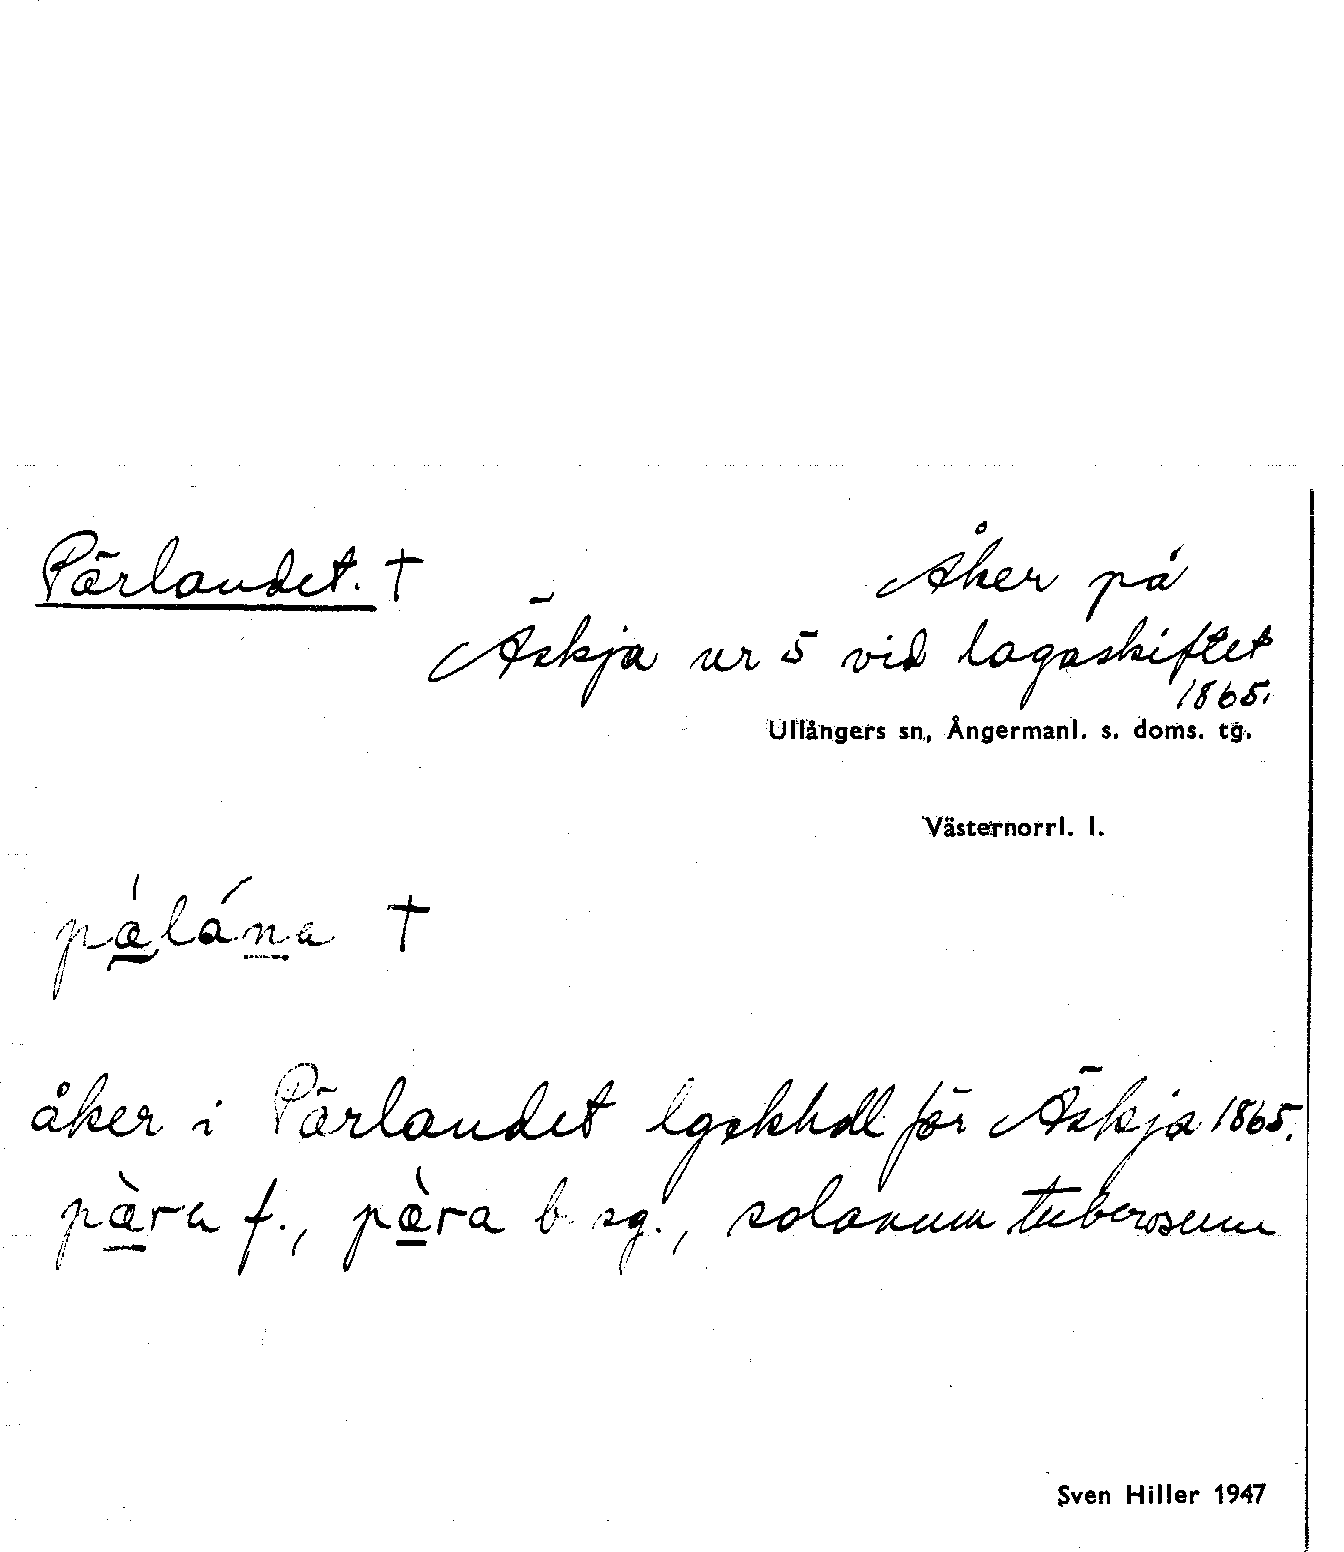 Pärlandet. †
Åker på
Äskja nr 5 vid lagaskiftet
1865.
Ullångers sn, Ångermanl. s. doms. tg.
Västernorrl. l.
†
åker i Pärlandet lgskhdl för Äskja 1865.
f., b sg., solanum tuberosum
Sven Hiller 1947